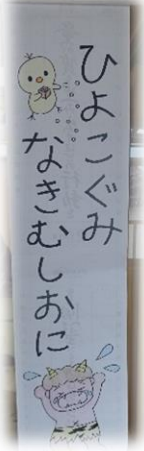 ひよこぐみ
なきむしおに